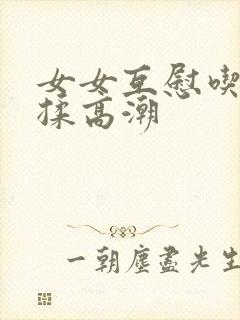 女女互慰喫
揉高潮
一朝塵盡光生